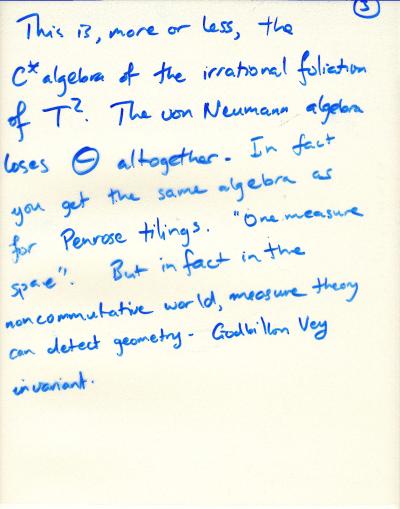 3
This is, more or less, the
C* algebra of the irrational foliation
of T². The von Neumann algebra
loses Θ altogether. In fact
you get the same algebra as
for Penrose tilings. "One measure
space". But in fact in the
noncommutative world, measure theory
can detect geometry - Godbillon Vey
invariant.